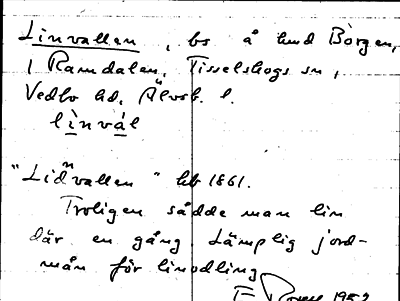 Linvallen, bs å hmd Borgen,
i Ramdalen, Tisselskogs sn,
Vedbo hd, Älvsb. l.
lìnvál
"Lidnvallen" hb 1861.
Troligen sådde man lin
där en gång. Lämplig jord-
mån för linodling